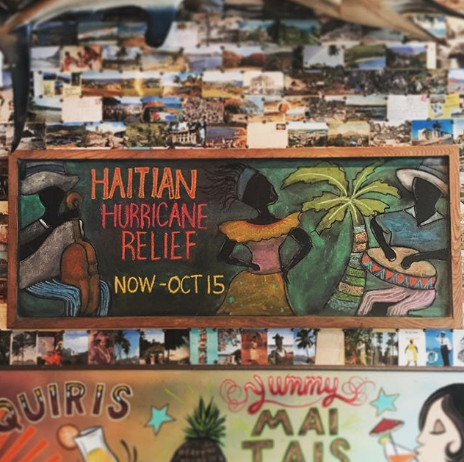 HAITIAN
HURRICANE
RELIEF
NOW-OCT 15
QUIRIS
yummy
MAI
TAIS